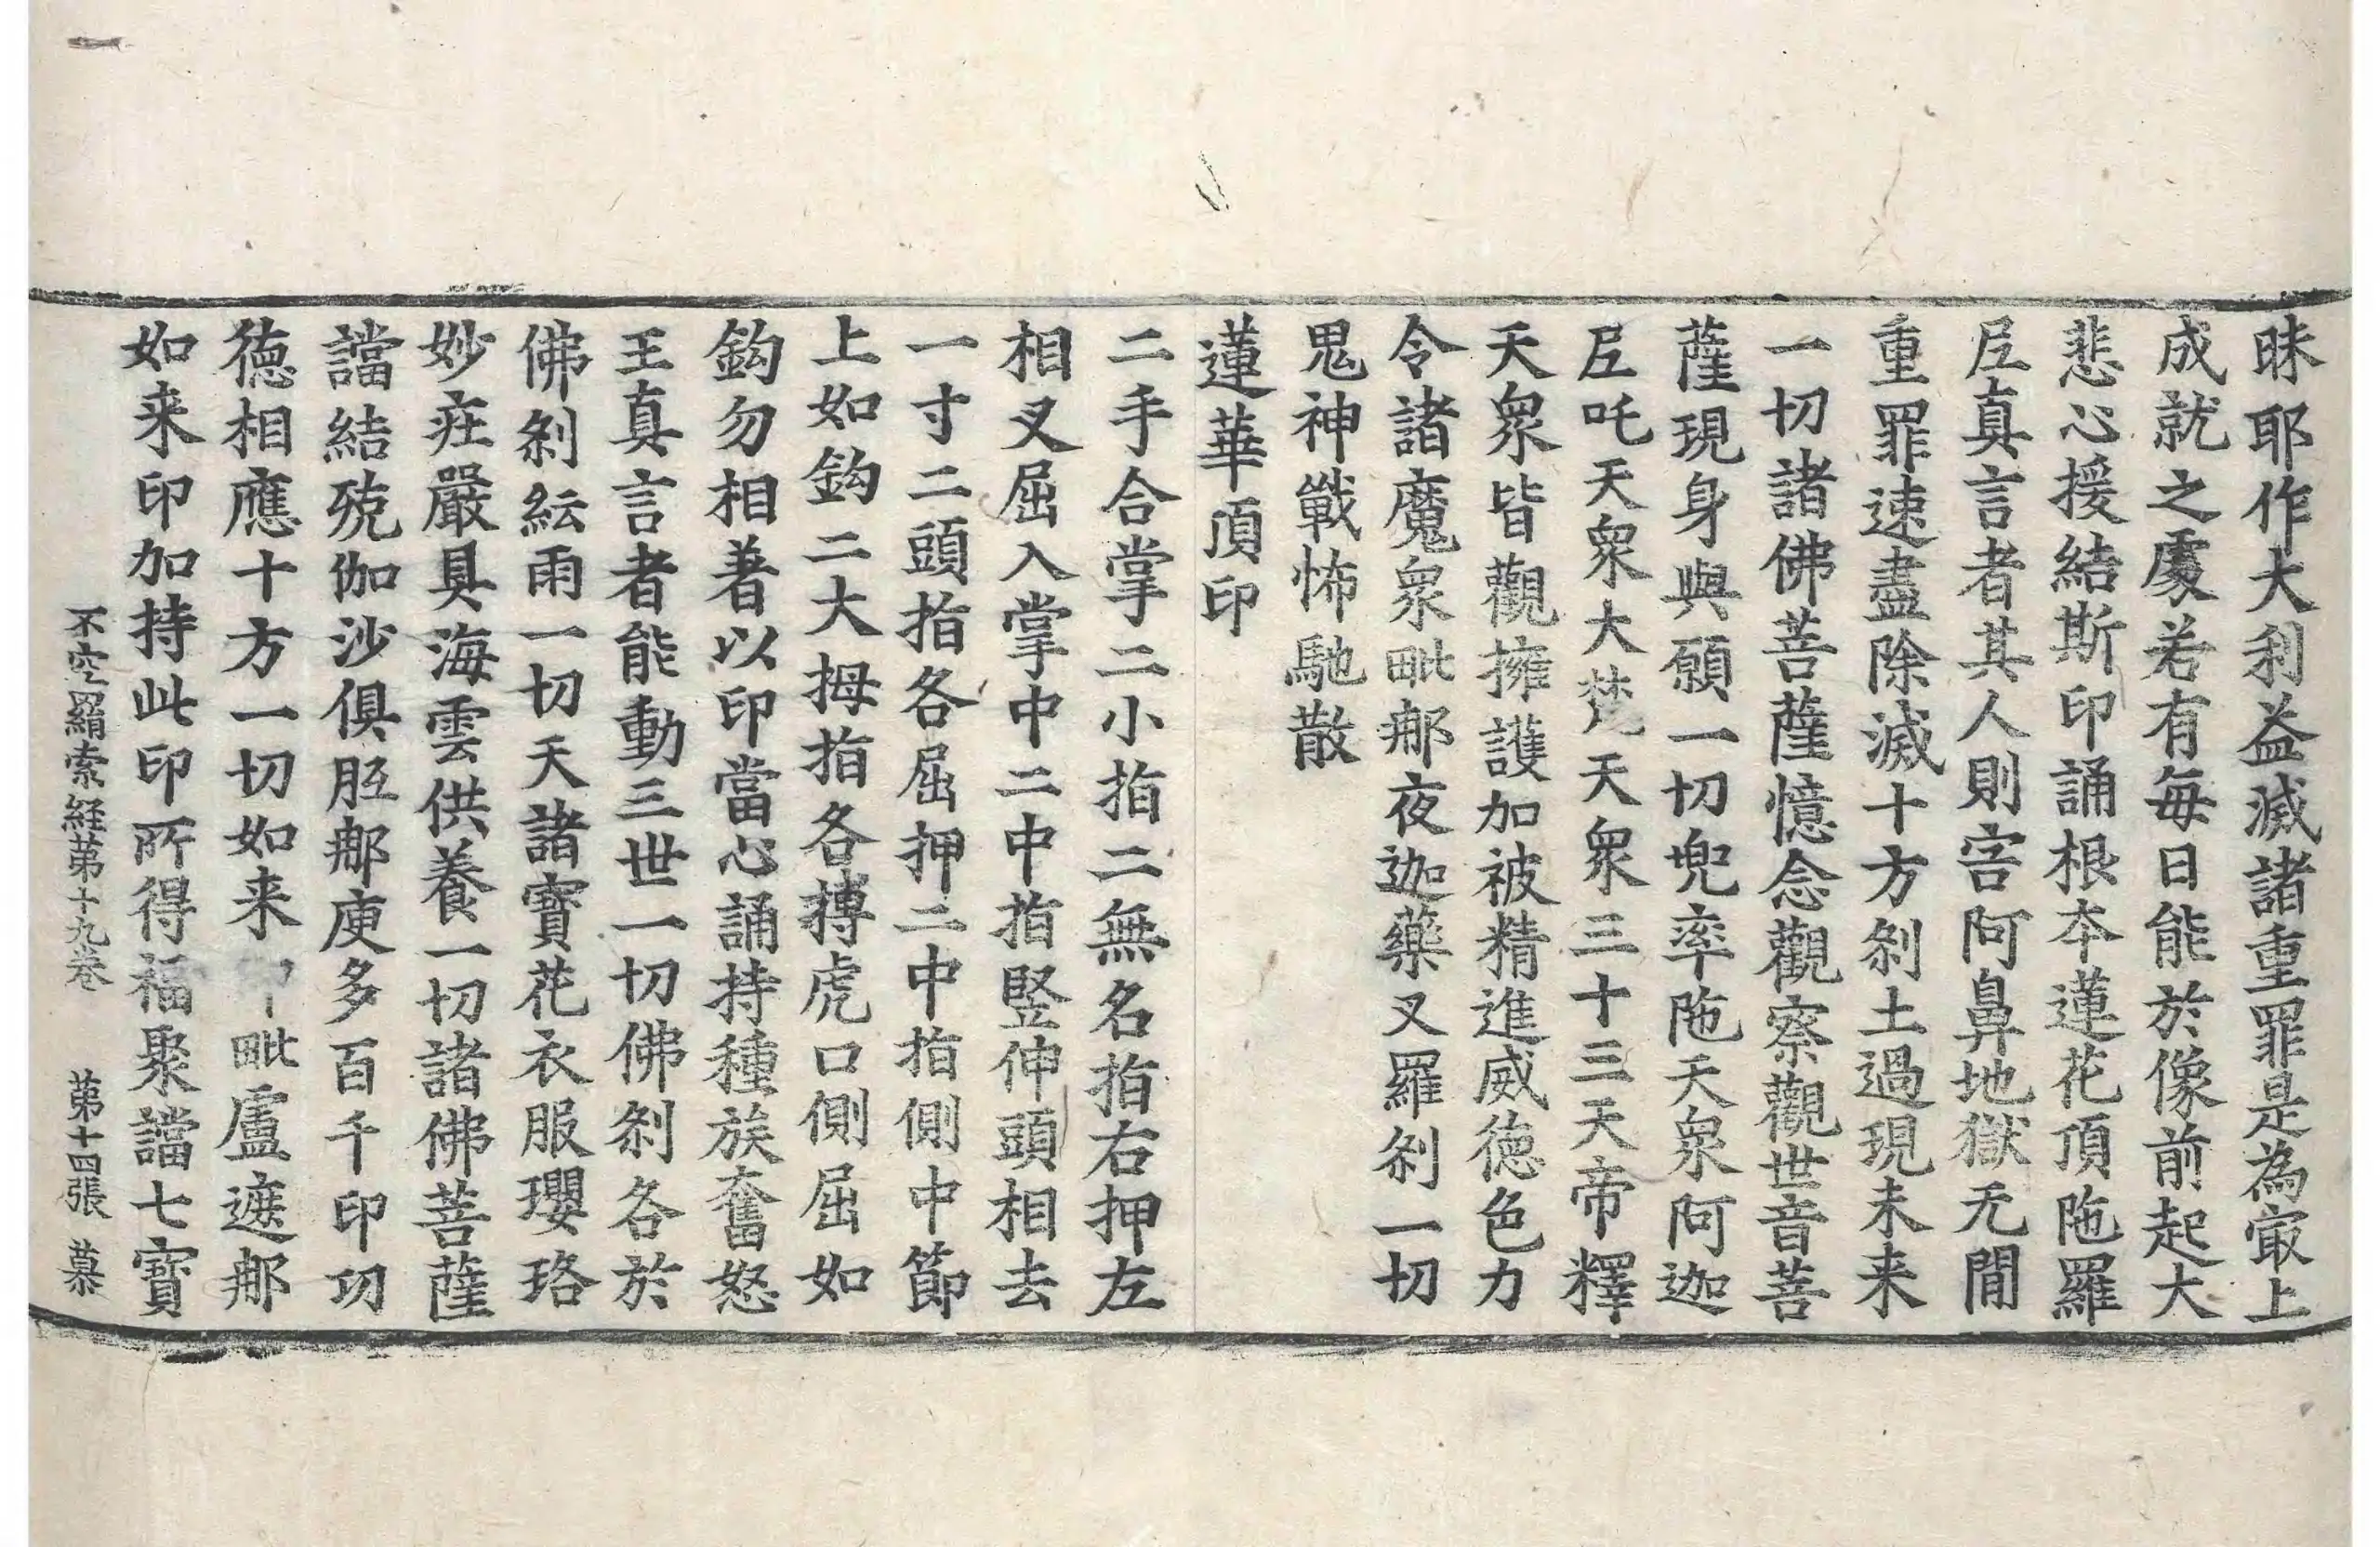 昧耶作大利益滅諸重罪是為㝡上
成就之處若有每日能於像前起大
悲心援結斯印誦根本蓮花頂陁羅
𡰱真言者其人則害阿鼻地獄无間
重罪速盡除滅十方刹土過現未来
一切諸佛菩薩憶念觀察觀世音菩
薩現身與願一切兜率陁天衆阿迦
𡰱吒天衆大梵天衆三十三天帝釋
天衆皆觀擁護加被精進威徳色力
令諸魔衆毗那夜迦藥叉羅刹一切
鬼神戰怖馳散
蓮華頂印
二手合掌二小指二無名指右押左
相叉屈入掌中二中指竪伸頭相去
一寸二頭指各屈押二中指側中節
上如鈎二大拇指各搏虎口側屈如
鈎勿相著以印當心誦持種族奮怒
王真言者能動三世一切佛刹各於
佛刹紜雨一切天諸寶花衣服瓔珞
妙莊嚴具海雲供養一切諸佛菩薩
譡結殑伽沙俱胝那庾多百千印功
徳相應十方一切如来毗盧遮那
如来印加持此印所得福聚譡七寶
不空羂索経第十九卷 第十四張 慕